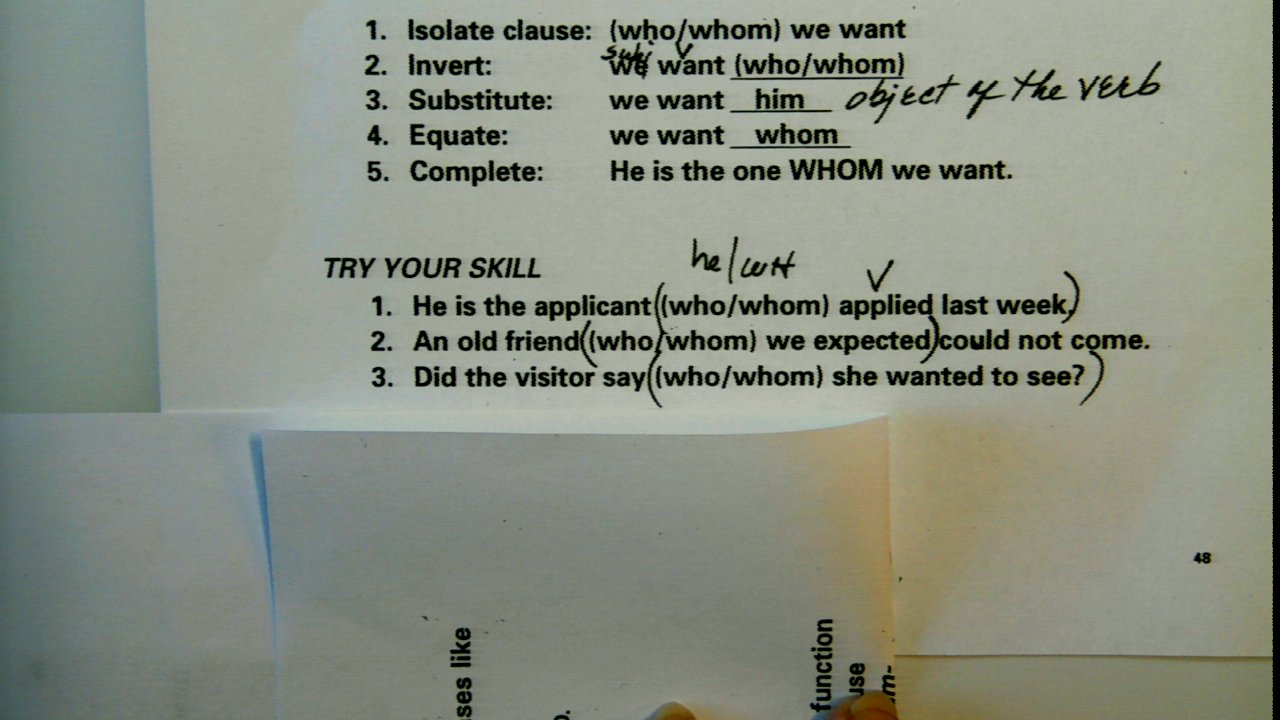 1. Isolate clause: (who/whom) we want
subj v
2. Invert: we want (who/whom)
3. Substitute: we want him object of the verb
4. Equate: we want whom
5. Complete: He is the one WHOM we want.
TRY YOUR SKILL
he/ v
1. He is the applicant((who/whom) applied last week)
2. An old friend((who/whom) we expected)could not come.
3. Did the visitor say((who/whom) she wanted to see?)
48
ses like
function
use
m-